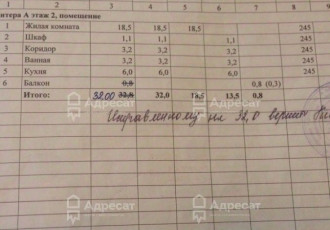 литера А этаж 2, помещение
1 Жилая комната 18,5 18,5 18,5 245
2 Шкаф 1,1 1,1 1,1 245
3 Коридор 3,2 3,2 3,2 245
4 Ванная 3,2 3,2 3,2 245
5 Кухня 6,0 6,0 6,0 245
6 Балкон 0,8 0,8 (0,3)
Итого: 32,00 32,8 32,0 18,5 13,5 0,8
Исправленному на 32,0 верить
Адресат
Адресат
Адресат
Адресат